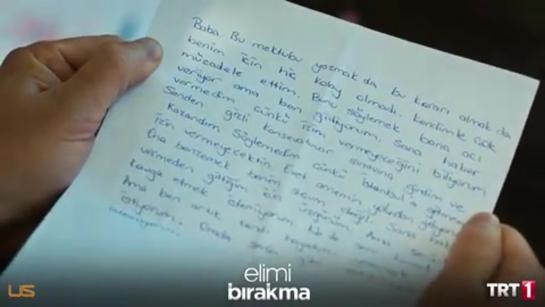 Baba. Bu mektubu yazmak da bu kararı almak da
benim için hiç kolay olmadı. kendimle çok
mücadele ettim. Bunu söylemek bana acı
veriyor ama ben gidiyorum. Sana haber
vermedim çünkü izin vermeyeceğini biliyorum
Senden gizli konservatuar sınavına girdim ve
kazandım Söylemedim çünkü İstanbul'a gitmeme
izin vermeyecektin. Evet annemin yolundan gidiyorum
Ona benzemek benim suçum değil. Sana haber
vermeden gittiğim için üzgünüm. Ama
kavga etmek istemiyorum
Ama ben artık kendi hayatımı
istiyorum.
elimi
bırakma
US
TRT 1